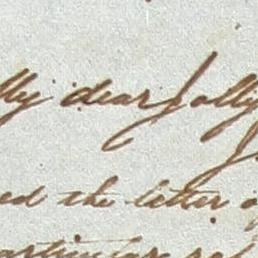 My dear Jolly
ed the letter
articular